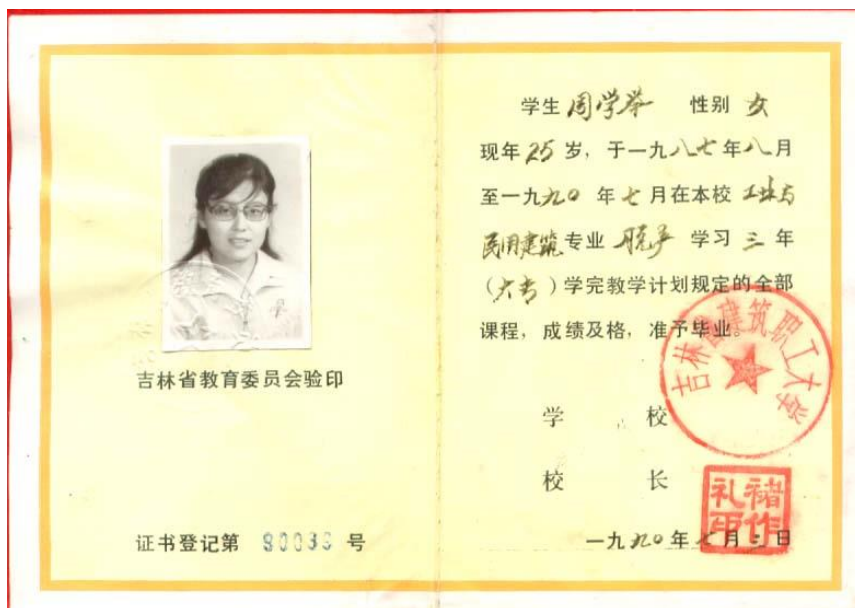 吉林省教育委员会验印
证书登记第 90036 号
学生 周学苓 性别 女
现年 25 岁，于一九八七年八月
至一九九〇年七月在本校 工业与
民用建筑专业 脱产 学习 三 年
（大专）学完教学计划规定的全部
课程，成绩及格，准予毕业。
吉林省建筑职工大学
学 校
校 长
一九九〇年七月三日